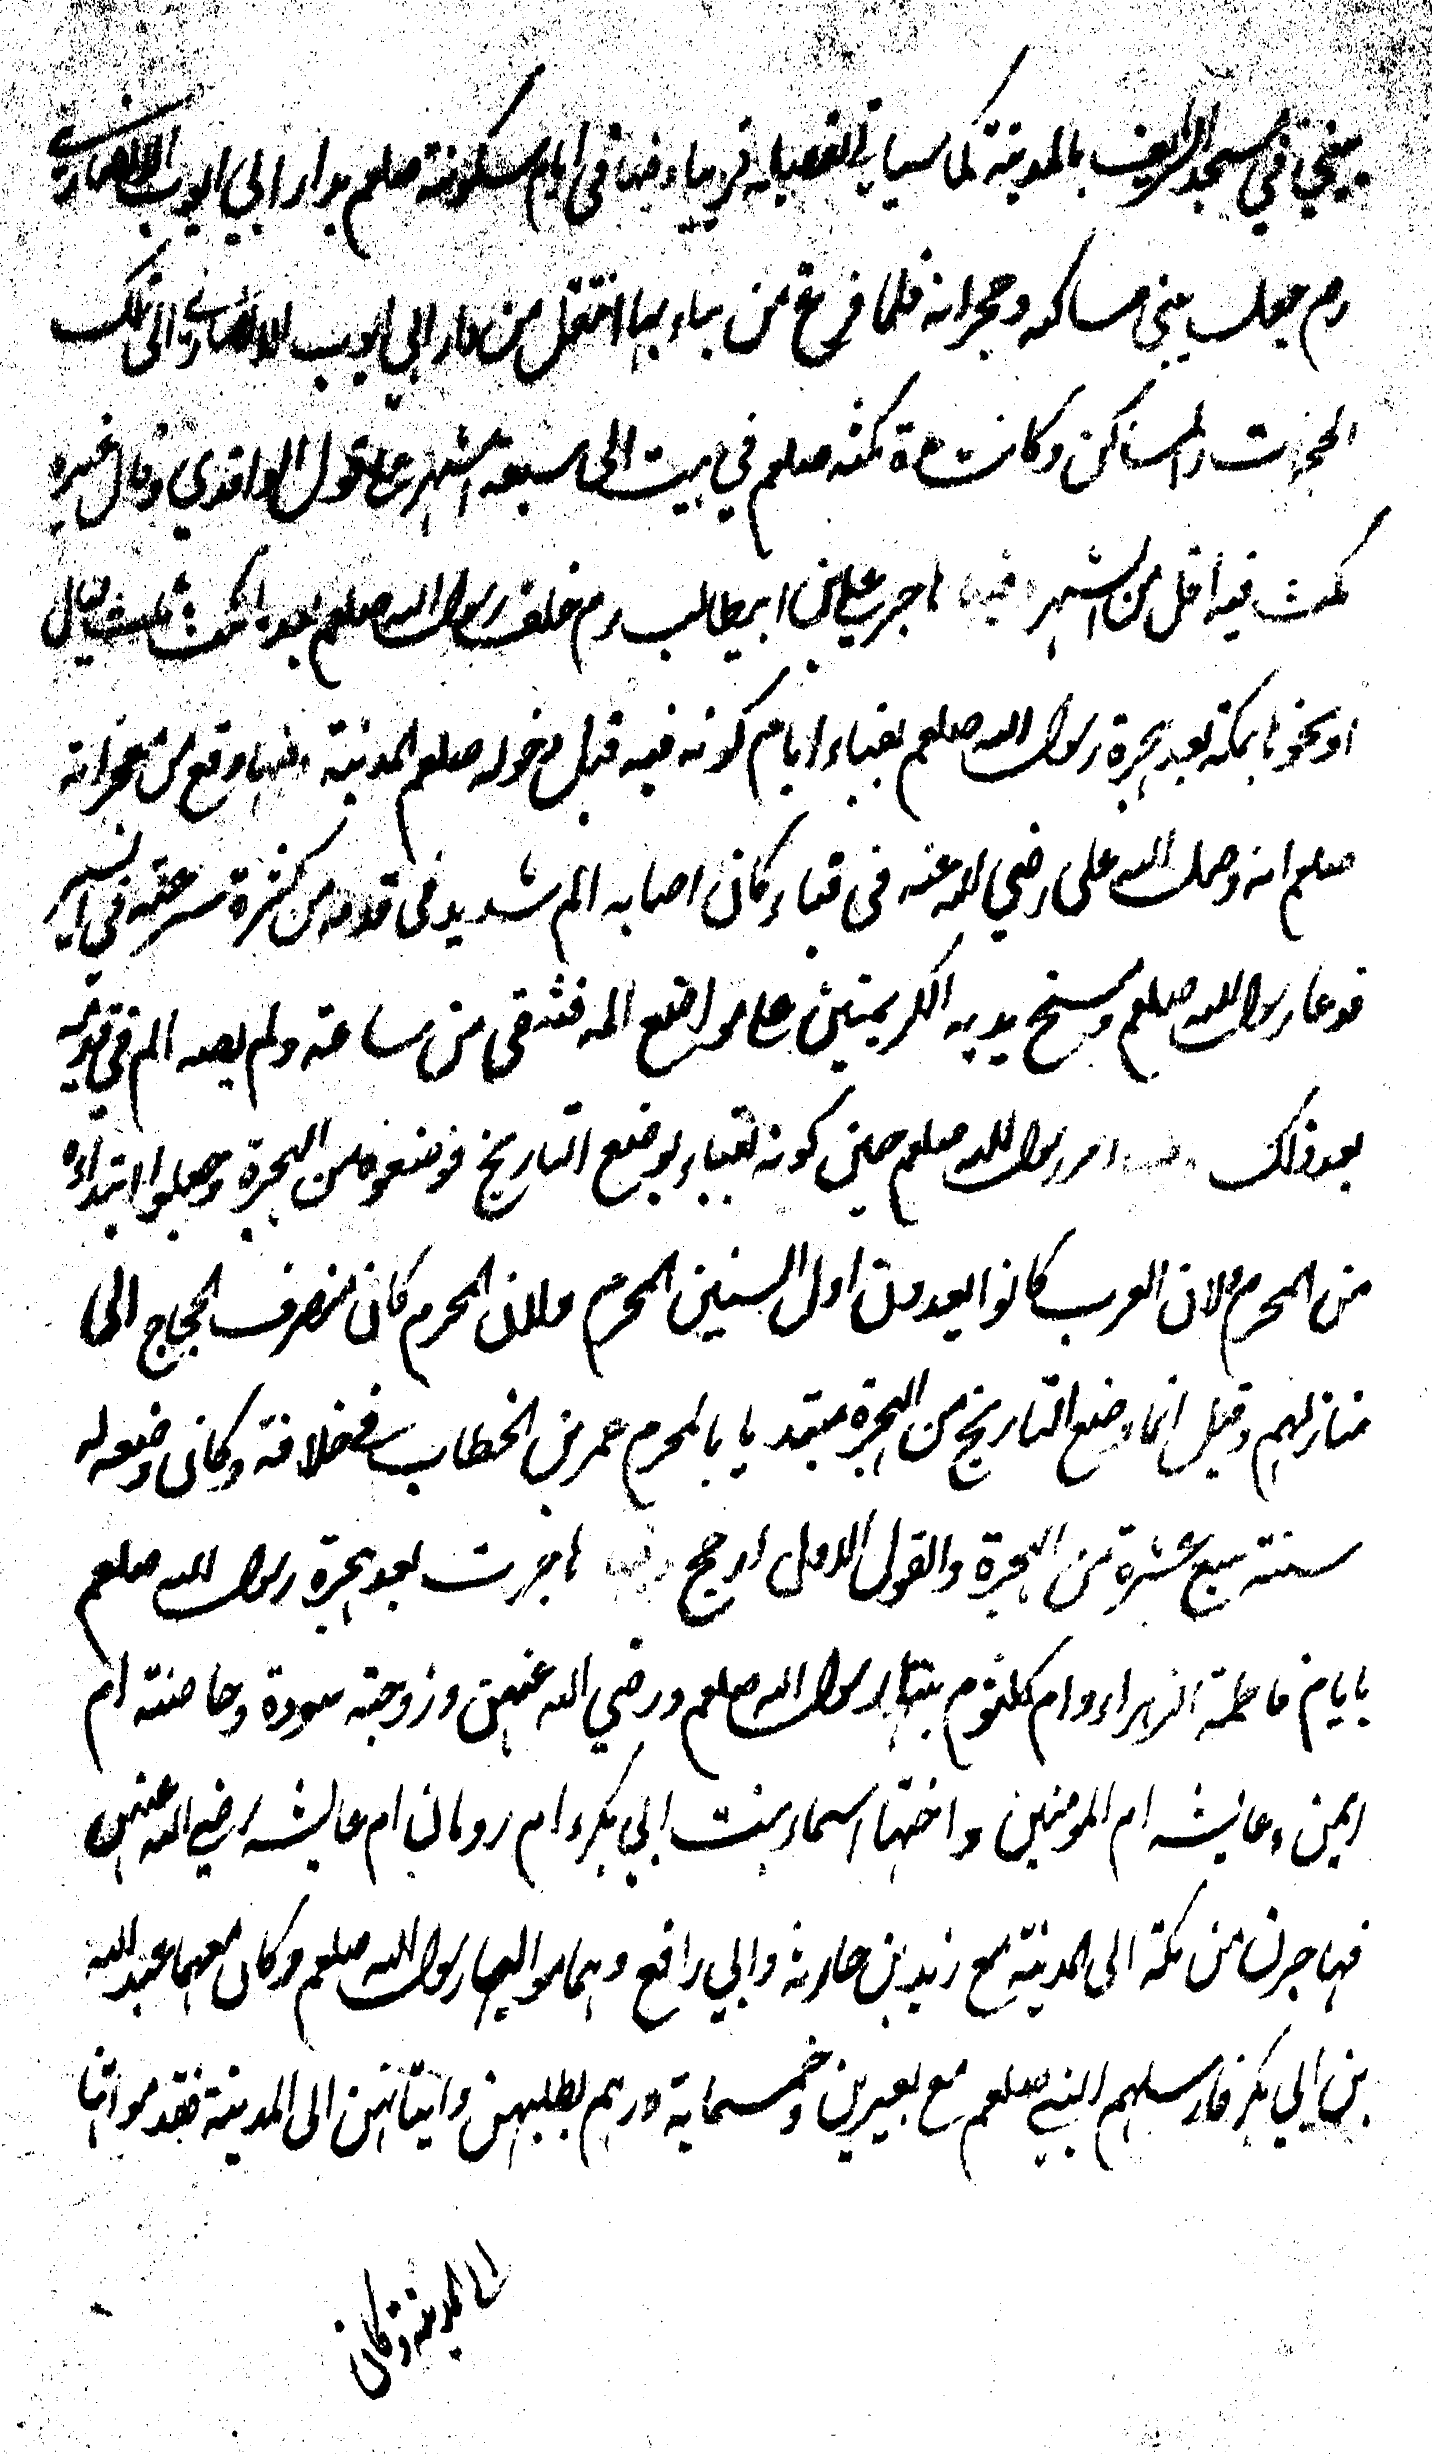 يبنى في مسجد الشريف بالمدينة كما سياتي تفصيله قريبا وفيها في ايام سكونته صلعم بدار ابي ايوب الانصاري
رم جعل يبني مساكنه وحجراته فلما فرغ من بناءها انتقل من دار ابي ايوب الانصاري الى تلك
الحجرات والمساكن وكانت مدة مكثه صلعم في بيت الى سبعة اشهر على قول الواقدي وقال غيره
مكث فيه اقل من اشهر وفيها هاجر علي بن ابيطالب رم خلف رسول الله صلعم بعد ما مكث ثلث ليال
او نحوها بمكة بعد هجرة رسول الله صلعم بقباء ايام كونه فيه قبل دخوله صلعم المدينة وفيها وقع من معجزاته
صلعم انه وصل اليه على رضي الله عنه في قباء وكان اصابه الم شديد في قدمه من كثرة سرعته في السير
فدعا رسول الله صلعم ومسح يديه الكريمتين على مواضع المه فشفى من ساعته ولم يصبه الم في قدميه
بعد ذلك وفيها امر رسول الله صلعم حين كونه بقباء بوضع التاريخ فوضعوه من الهجرة وجعلوا ابتداءه
من المحرم لان العرب كانوا يعدون اول السنين المحرم ولان المحرم كان منصرف الحجاج الى
منازلهم وقيل انما وضع التاريخ من الهجرة مبتديا بالمحرم عمر بن الخطاب في خلافته وكان وضعه له
سنة سبع عشرة من الهجرة والقول الاول ارجح وفيها هاجرت بعد هجرة رسول الله صلعم
بايام فاطمة الزهراء وام كلثوم بنتا رسول الله صلعم ورضي الله عنهن وزوجته سودة وحاضنته ام
ايمن وعايشه ام المومنين واختها اسماء بنت ابي بكر وام رومان ام عايشه رضي الله عنهن
فهاجرن من مكة الى المدينة مع زيد بن حارثة وابي رافع وهما موليا رسول الله صلعم وكان معهما عبد الله
بن ابي بكر فارسلهم النبي صلعم مع بعيرين وخمسماية درهم بطلبهن واتيانهن الى المدينة فقدموا بها
الى المدينة وكان